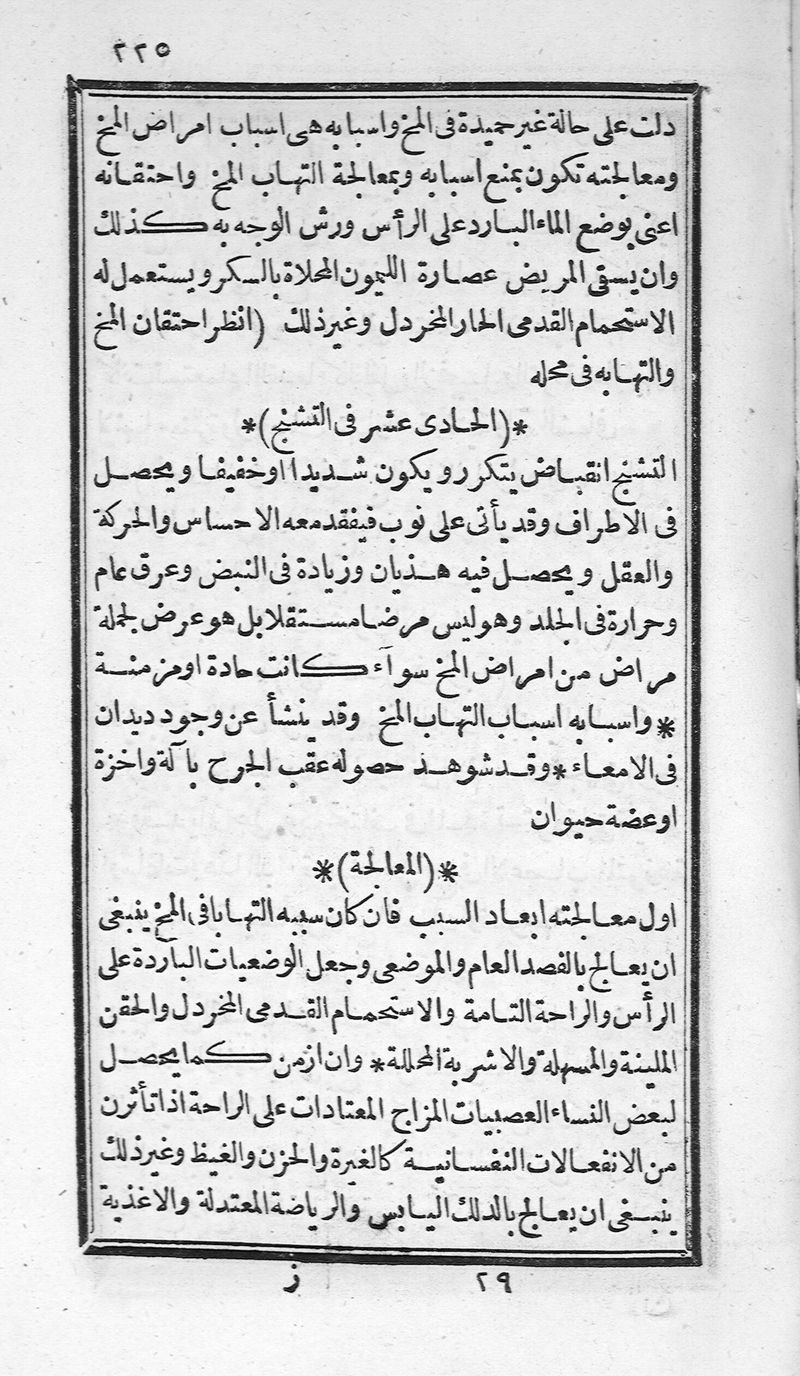 ٢٢٥
دلت على حالة غير حميدة فى المخ واسبابه هى اسباب امراض المخ
ومعالجته تكون بمنع اسبابه وبمعالجة التهاب المخ واحتقانه
اعنى بوضع الماء البارد على الرأس ورش الوجه به كذلك
وان يسقى المريض عصارة الليمون المحلاة بالسكر ويستعمل له
الاستحمام القدمى الحار المخردل وغير ذلك (انظر احتقان المخ
والتهابه فى محله
*(الحادى عشر فى التشنج)*
التشنج انقباض يتكرر ويكون شديدا اوخفيفا ويحصل
فى الاطراف وقد يأتى على نوب فيفقد معه الاحساس والحركة
والعقل ويحصل فيه هذيان وزيادة فى النبض وعرق عام
وحرارة فى الجلد وهوليس مرضا مستقلا بل هو عرض لجملة
مراض من امراض المخ سوآء كانت حادة اومزمنة
* واسبابه اسباب التهاب المخ وقد ينشأ عن وجود ديدان
فى الامعاء * وقد شوهد حصوله عقب الجرح بآلة واخزة
اوعضة حيوان
*(المعالجة)*
اول معالجته ابعاد السبب فان كان سببه التهابا فى المخ ينبغى
ان يعالج بالفصد العام والموضعى وجعل الوضعيات الباردة على
الرأس والراحة التامة والاستحمام القدمى المخردل والحقن
الملينة والمسهلة والاشربة المحللة * وان ازمن كما يحصل
لبعض النساء العصبيات المزاج المعتادات على الراحة اذا تأثرن
من الانفعالات النفسانية كالغيرة والحزن والغيظ وغير ذلك
ينبغى ان يعالج بالدلك اليابس والرياضة المعتدلة والاغذية
٢٩ ز